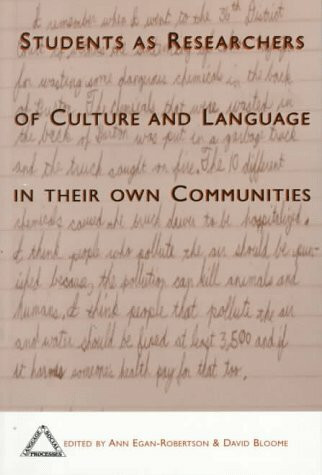 I remember when I went to the 36th District
STUDENTS AS RESEARCHERS
for wasting some dangerous chemicals in the back
of The chemicals that were wasted in
OF CULTURE AND LANGUAGE
the back of was put in a garbage truck
and the truck caught on fire. The 10 different
IN THEIR OWN COMMUNITIES
chemicals caused the truck driver to be hospitalized.
I think people who pollute the air should be pun-
ished because, the pollution can kill animals and
humans. I think people that pollute the air
and water should be fined at least 3,500 and if
it harms someones health pay for that too.
LANGUAGE & SOCIAL PROCESSES
EDITED BY ANN EGAN-ROBERTSON & DAVID BLOOME